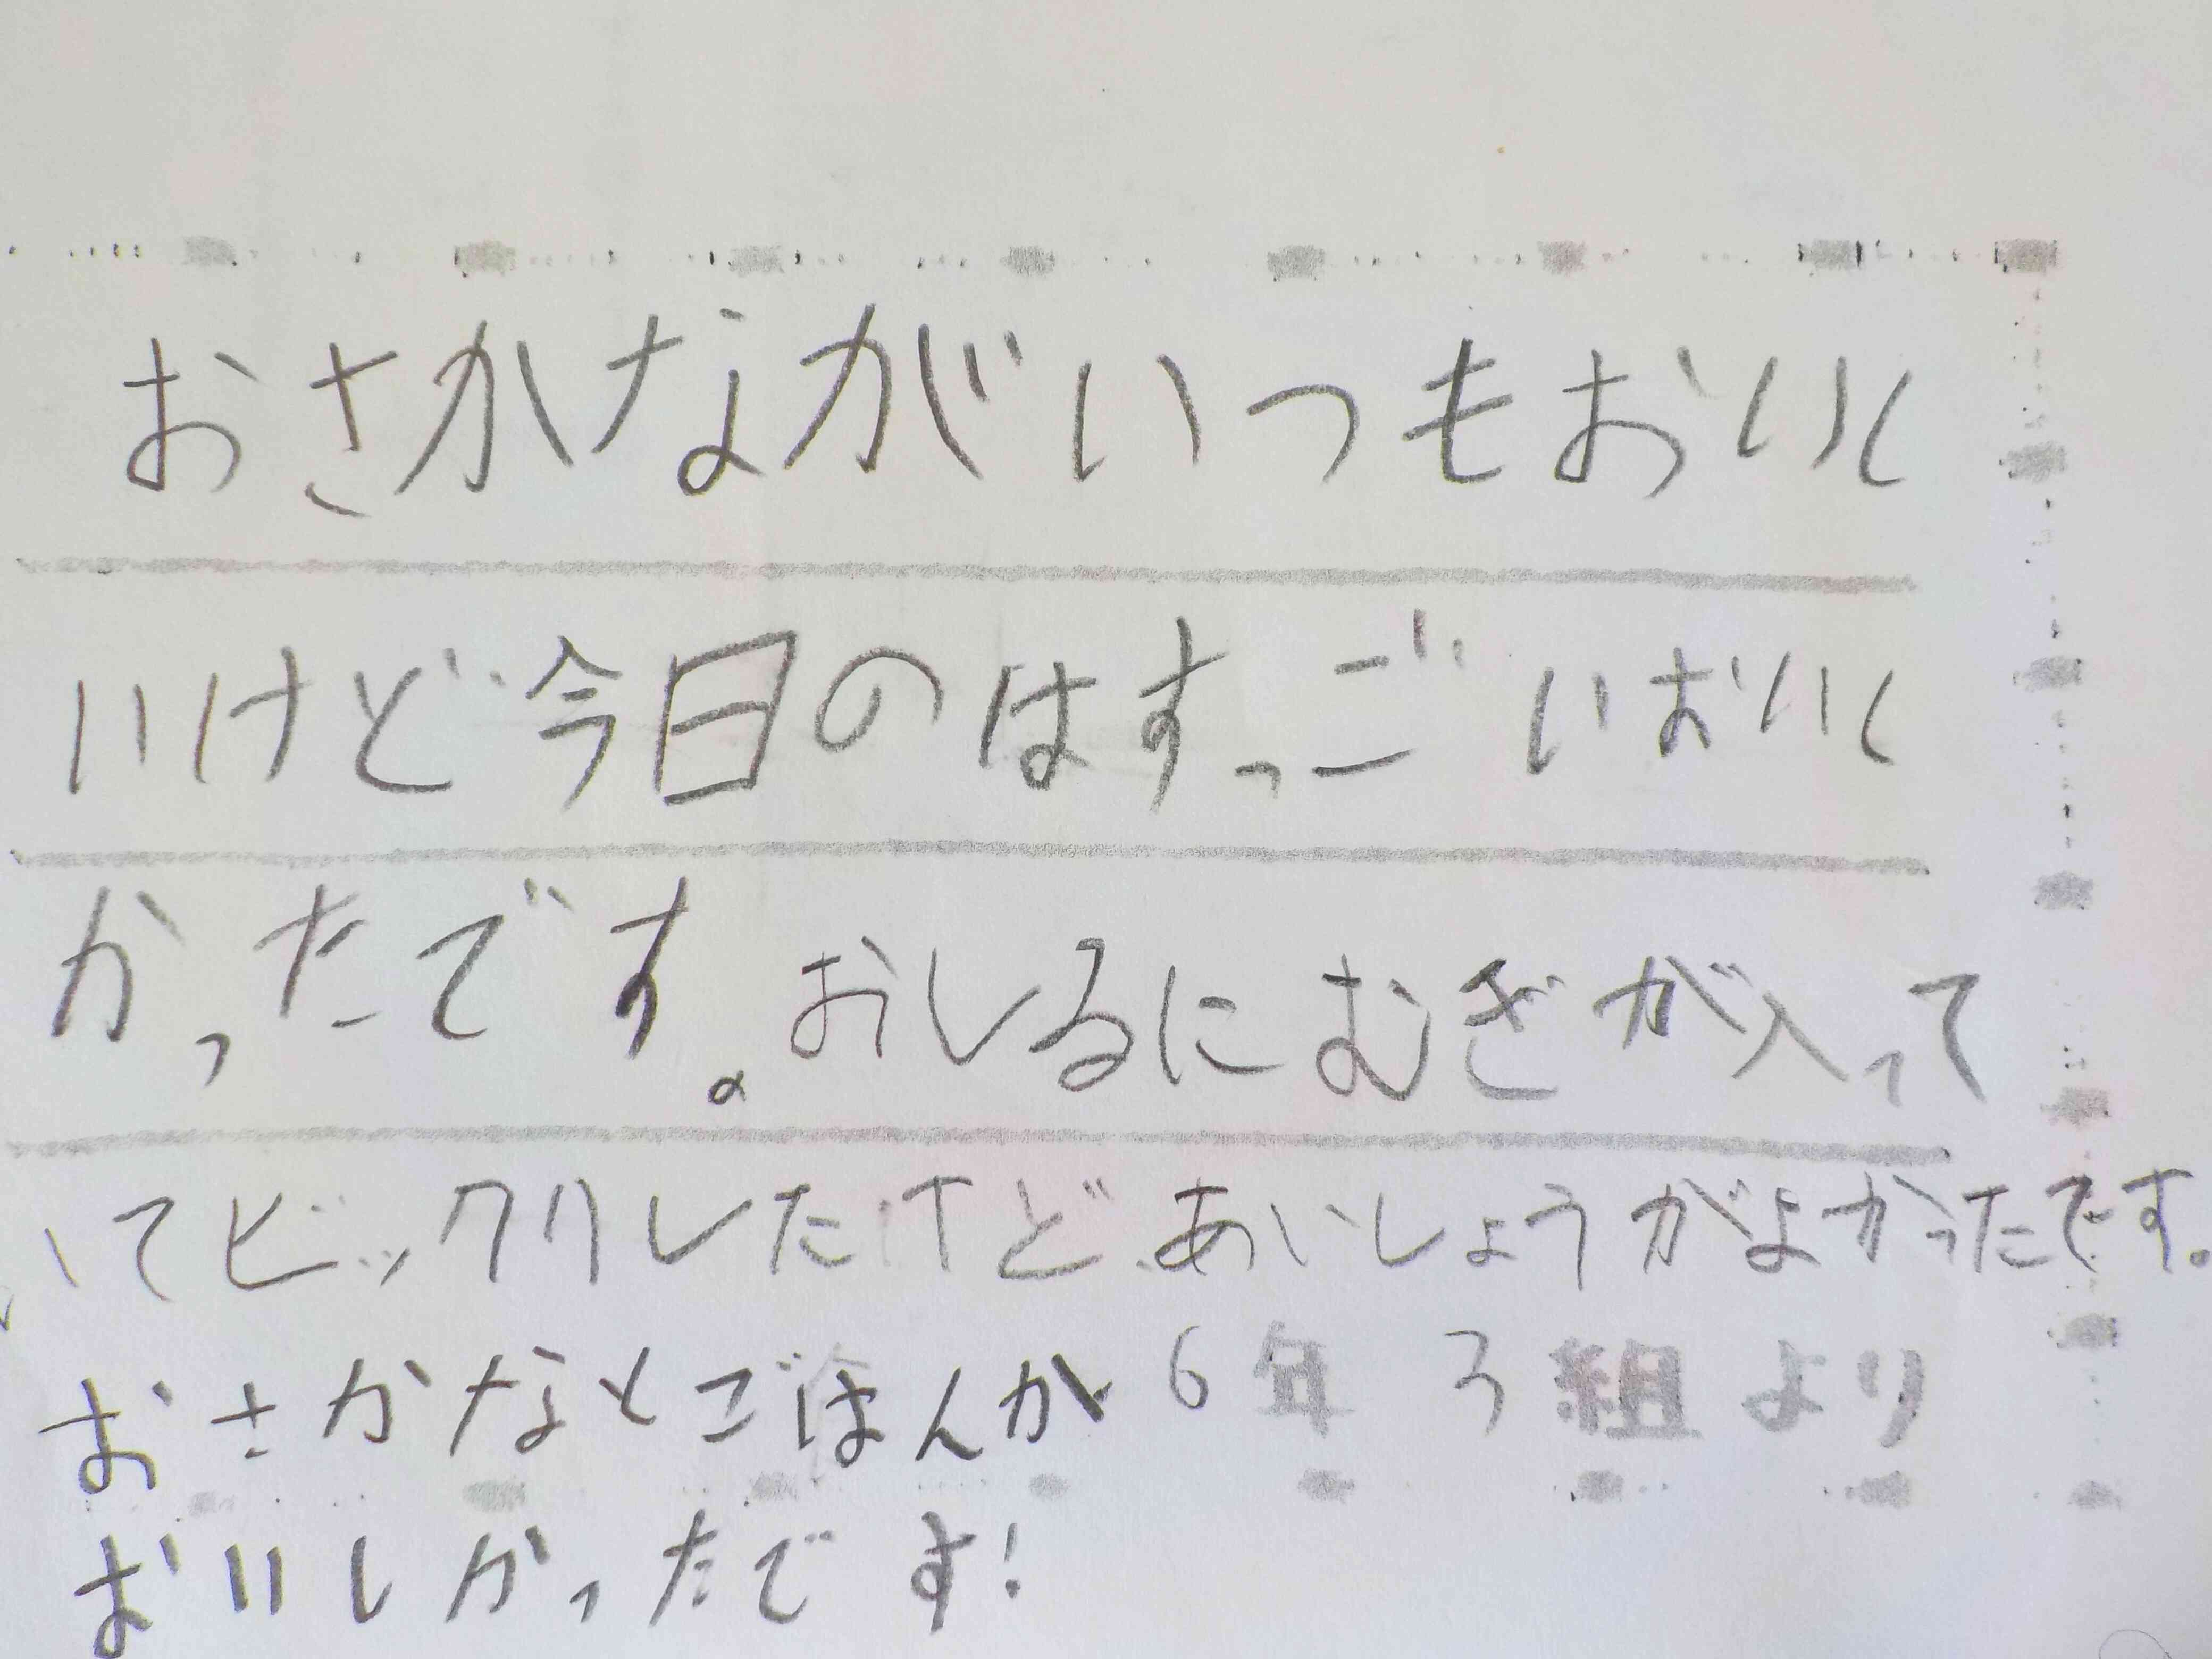 おさかながいつもおいし
いけど今日のはすっごいおいし
かったです。おしるにむぎが入って
いてビックリしたけど、あいしょうがよかったです。
おさかなとごはんが
6年 3組より
おいしかったです!